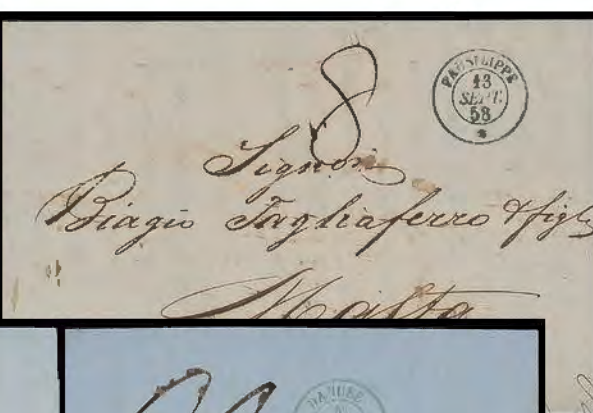 8
PAUSILIPPE
13
SEPT.
58
Signori
Biagio Tagliaferro & figli
Malta
DANUBE